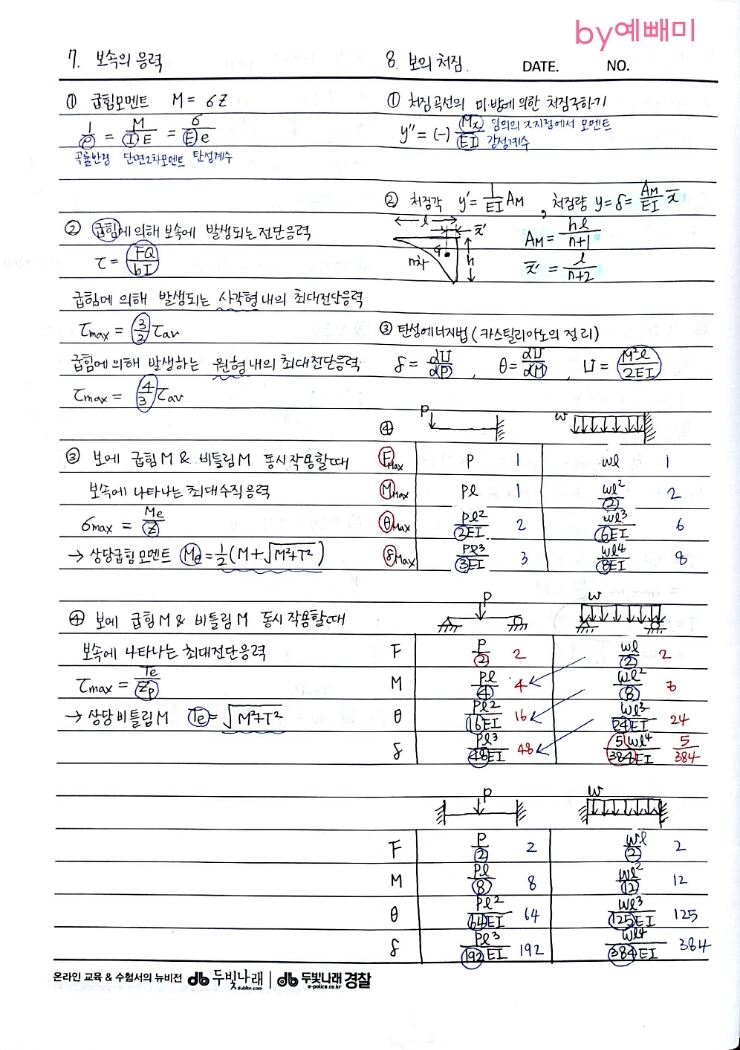 by예빼미
7. 보속의 응력
① 굽힘모멘트 M = σZ
1/ρ = M/IE = σ/Ee
곡률반경 단면2차모멘트 탄성계수
② 굽힘에 의해 보속에 발생되는 전단응력
τ = FQ/bI
굽힘에 의해 발생되는 사각형 내의 최대전단응력
τmax = 3/2 τav
굽힘에 의해 발생하는 원형 내의 최대전단응력
τmax = 4/3 τav
③ 보에 굽힘 M & 비틀림 M 동시작용할때
보속에 나타나는 최대수직응력
σmax = Me/Z
→ 상당굽힘모멘트 Me = 1/2(M+√M²+T²)
④ 보에 굽힘 M & 비틀림 M 동시작용할때
보속에 나타나는 최대전단응력
τmax = Te/Zp
→ 상당비틀림 M Te = √M²+T²
8. 보의 처짐. DATE. NO.
① 처짐곡선의 미·방에 의한 처짐구하기
y'' = (-) Mx/EI 임의의 x지점에서 모멘트
강성계수
② 처짐각 y' = 1/EI AM , 처짐량 y = δ = AM/EI x̄
l x̄'
G h n차
AM = hl/n+1
x̄' = l/n+2
③ 탄성에너지법 (카스틸리아노의 정리)
δ = dU/dP , θ = dU/dM , U = M²l/2EI
④ P w
Fmax P 1 wl 1
Mmax Pl 1 wl²/2 2
θmax Pl²/2EI 2 wl³/6EI 6
δmax Pl³/3EI 3 wl⁴/8EI 8
P w
F P/2 2 wl/2 2
M Pl/4 4 wl²/8 8
θ Pl²/16EI 16 wl³/24EI 24
δ Pl³/48EI 48 5wl⁴/384EI 5/384
P w
F P/2 2 wl/2 2
M Pl/8 8 wl²/12 12
θ Pl²/64EI 64 wl³/125EI 125
δ Pl³/192EI 192 wl⁴/384EI 384
온라인 교육 & 수험서의 뉴비전 db 두빛나래 | db 두빛나래 경찰